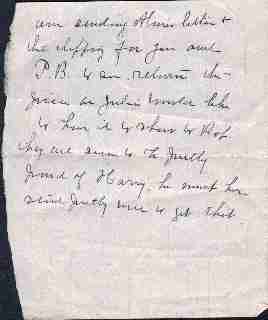 am sending Alma's letter &
the clipping for you and
P.B. to see, return the
as Julia would like
to have it to show to
They are sure to be justly
proud of Harry. he must have
justly to get that